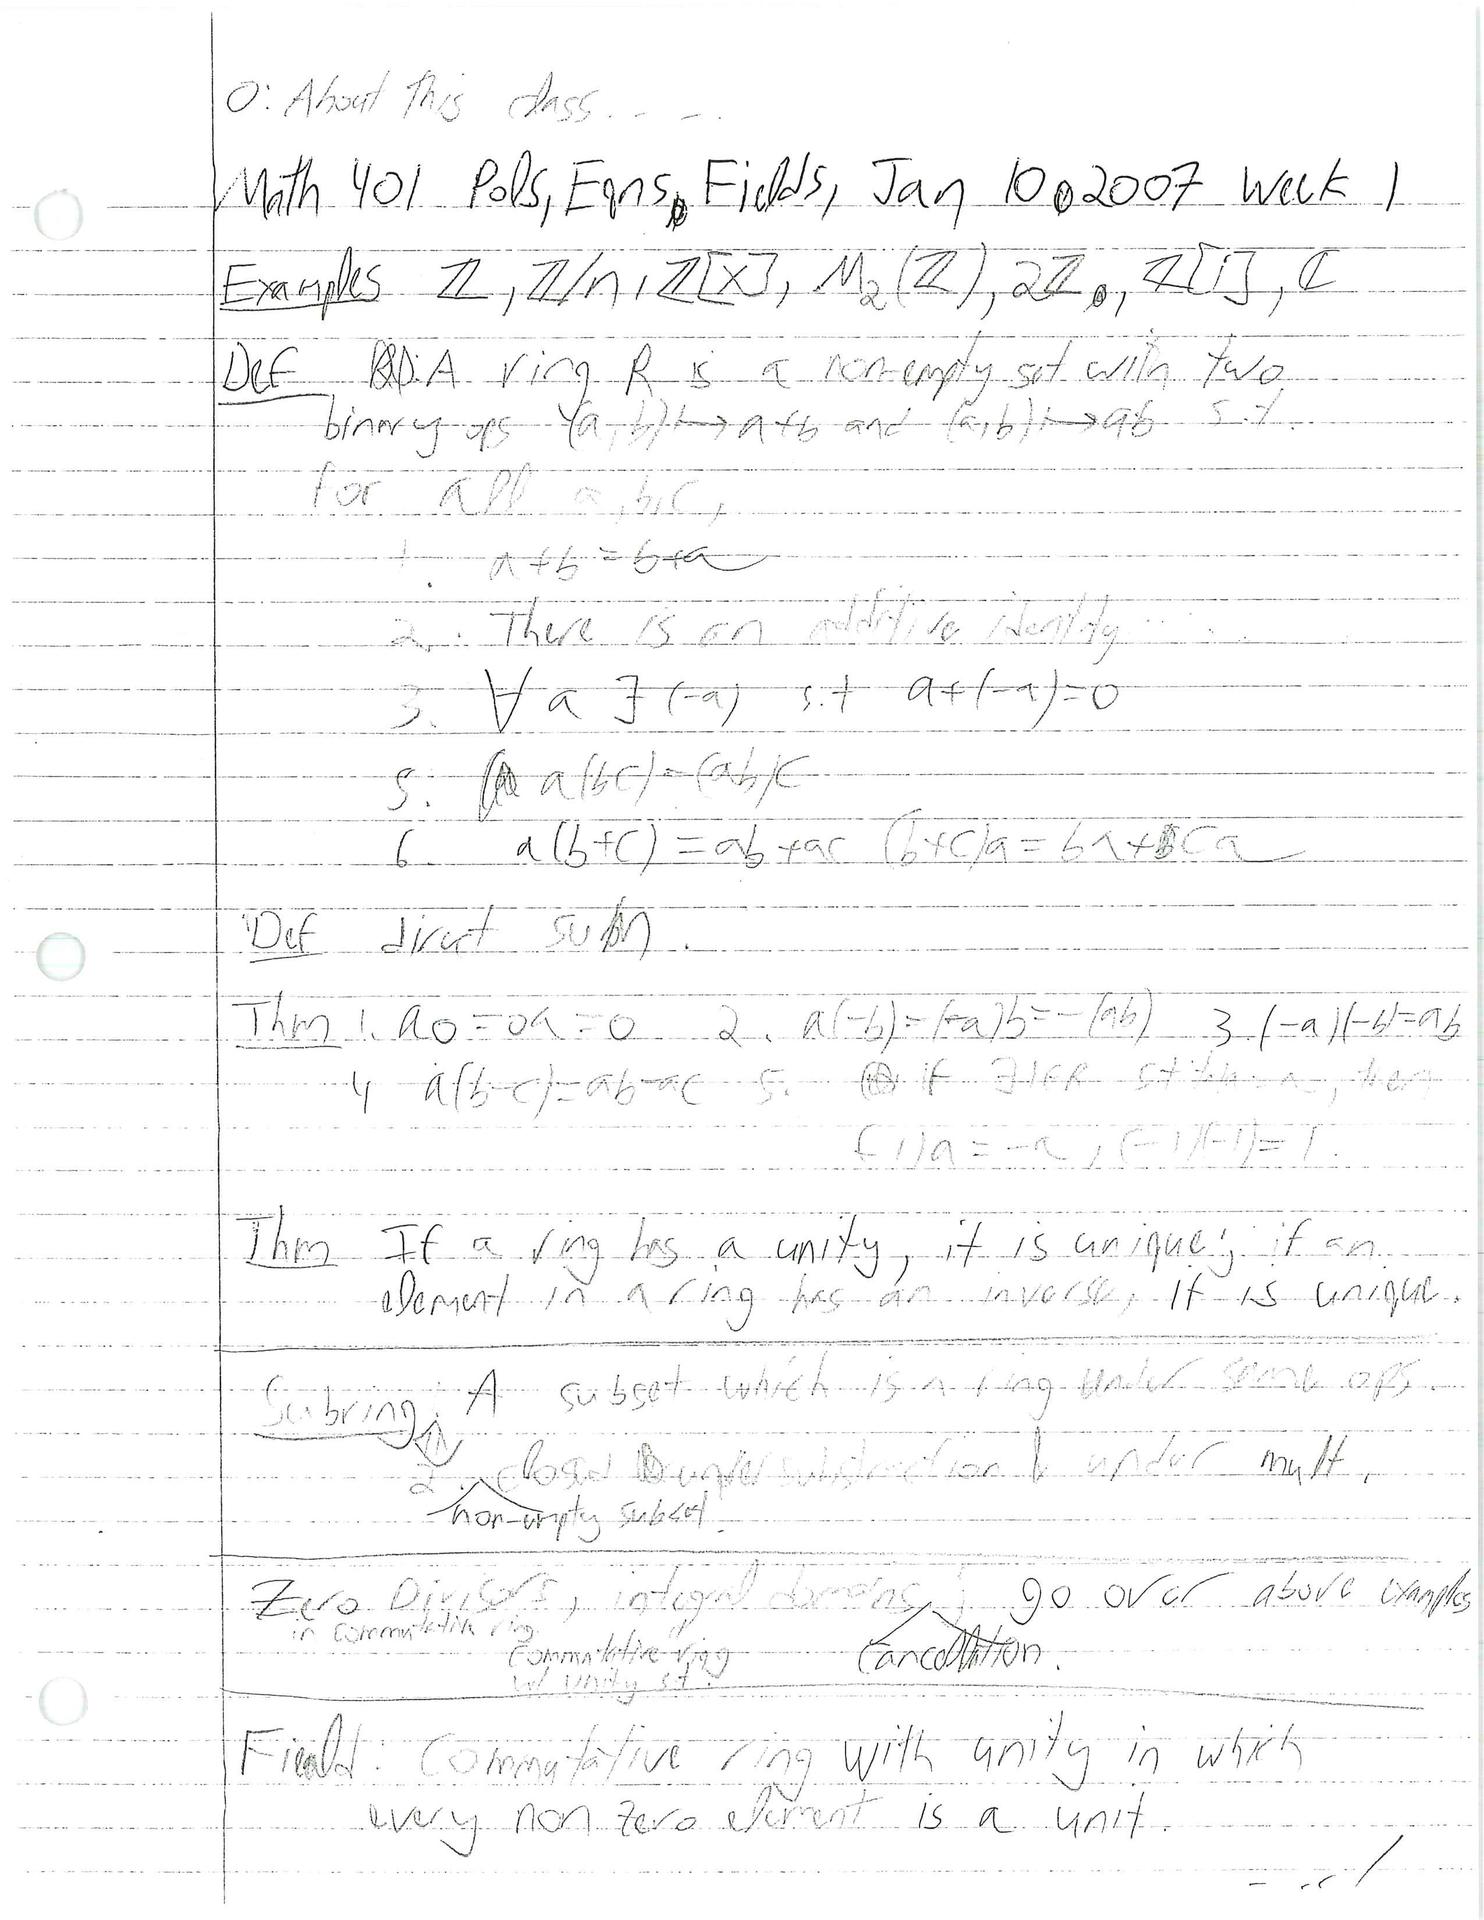 0: About this class....
Math 401 Pols, Eqns, Fields, Jan 10, 2007 Week 1
Examples ℤ, ℤ/n, ℤ[x], M₂(ℤ), 2ℤ, ℤ[i], ℂ
Def A ring R is a non-empty set with two
binary ops (a,b)↦a+b and (a,b)↦ab s.t.
for all a,b,c,
1. a+b=b+a
2. There is an additive identity.....
3. ∀a ∃(-a) s.t a+(-a)=0
5. a(bc)=(ab)c
6. a(b+c)=ab+ac (b+c)a=ba+ca
Def direct sum.
Thm 1. a0=0a=0 2. a(-b)=(-a)b=-(ab) 3 (-a)(-b)=ab
4 a(b-c)=ab-ac 5. if ∃1∈R st, then
(-1)a=-a, (-1)(-1)=1.
Thm If a ring has a unity, it is unique; if an
element in a ring has an inverse, it is unique.
Subring: A subset which is a ring under same ops.
⇕
2. closed under subtraction & under mult.
non-empty subset.
Zero Divisors, integral domains; go over above examples
in commutative ring
commutative ring cancellation.
w/ unity st.
Field: Commutative ring with unity in which
every non zero element is a unit.